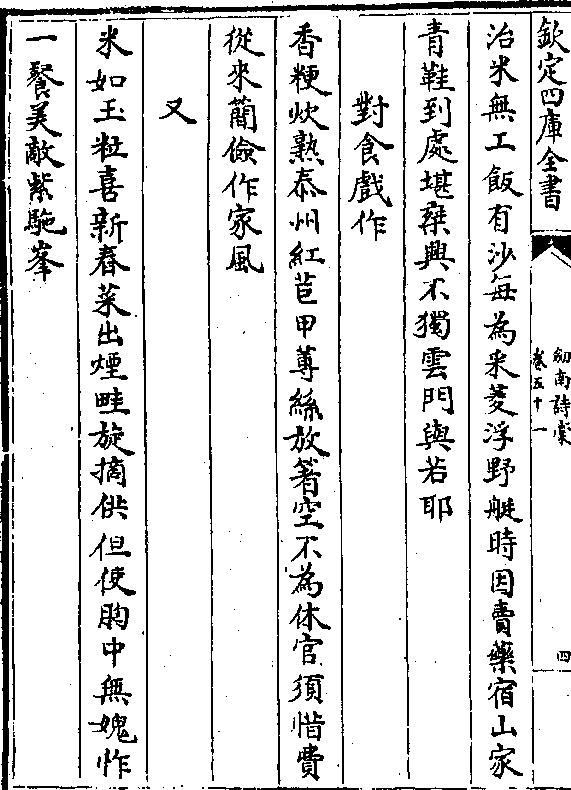 欽定四庫全書
劒南詩槀
卷五十一
四
治米無工飯有沙每為采菱浮野艇時因賣藥宿山家
青鞋到處堪乗興不獨雲門與若耶
對食戲作
香粳炊熟泰州紅苣甲蓴絲放箸空不為休官須惜費
從來簡儉作家風
又
米如玉粒喜新舂菜出煙畦旋摘供但使胸中無媿怍
一餐美敵紫駞峯